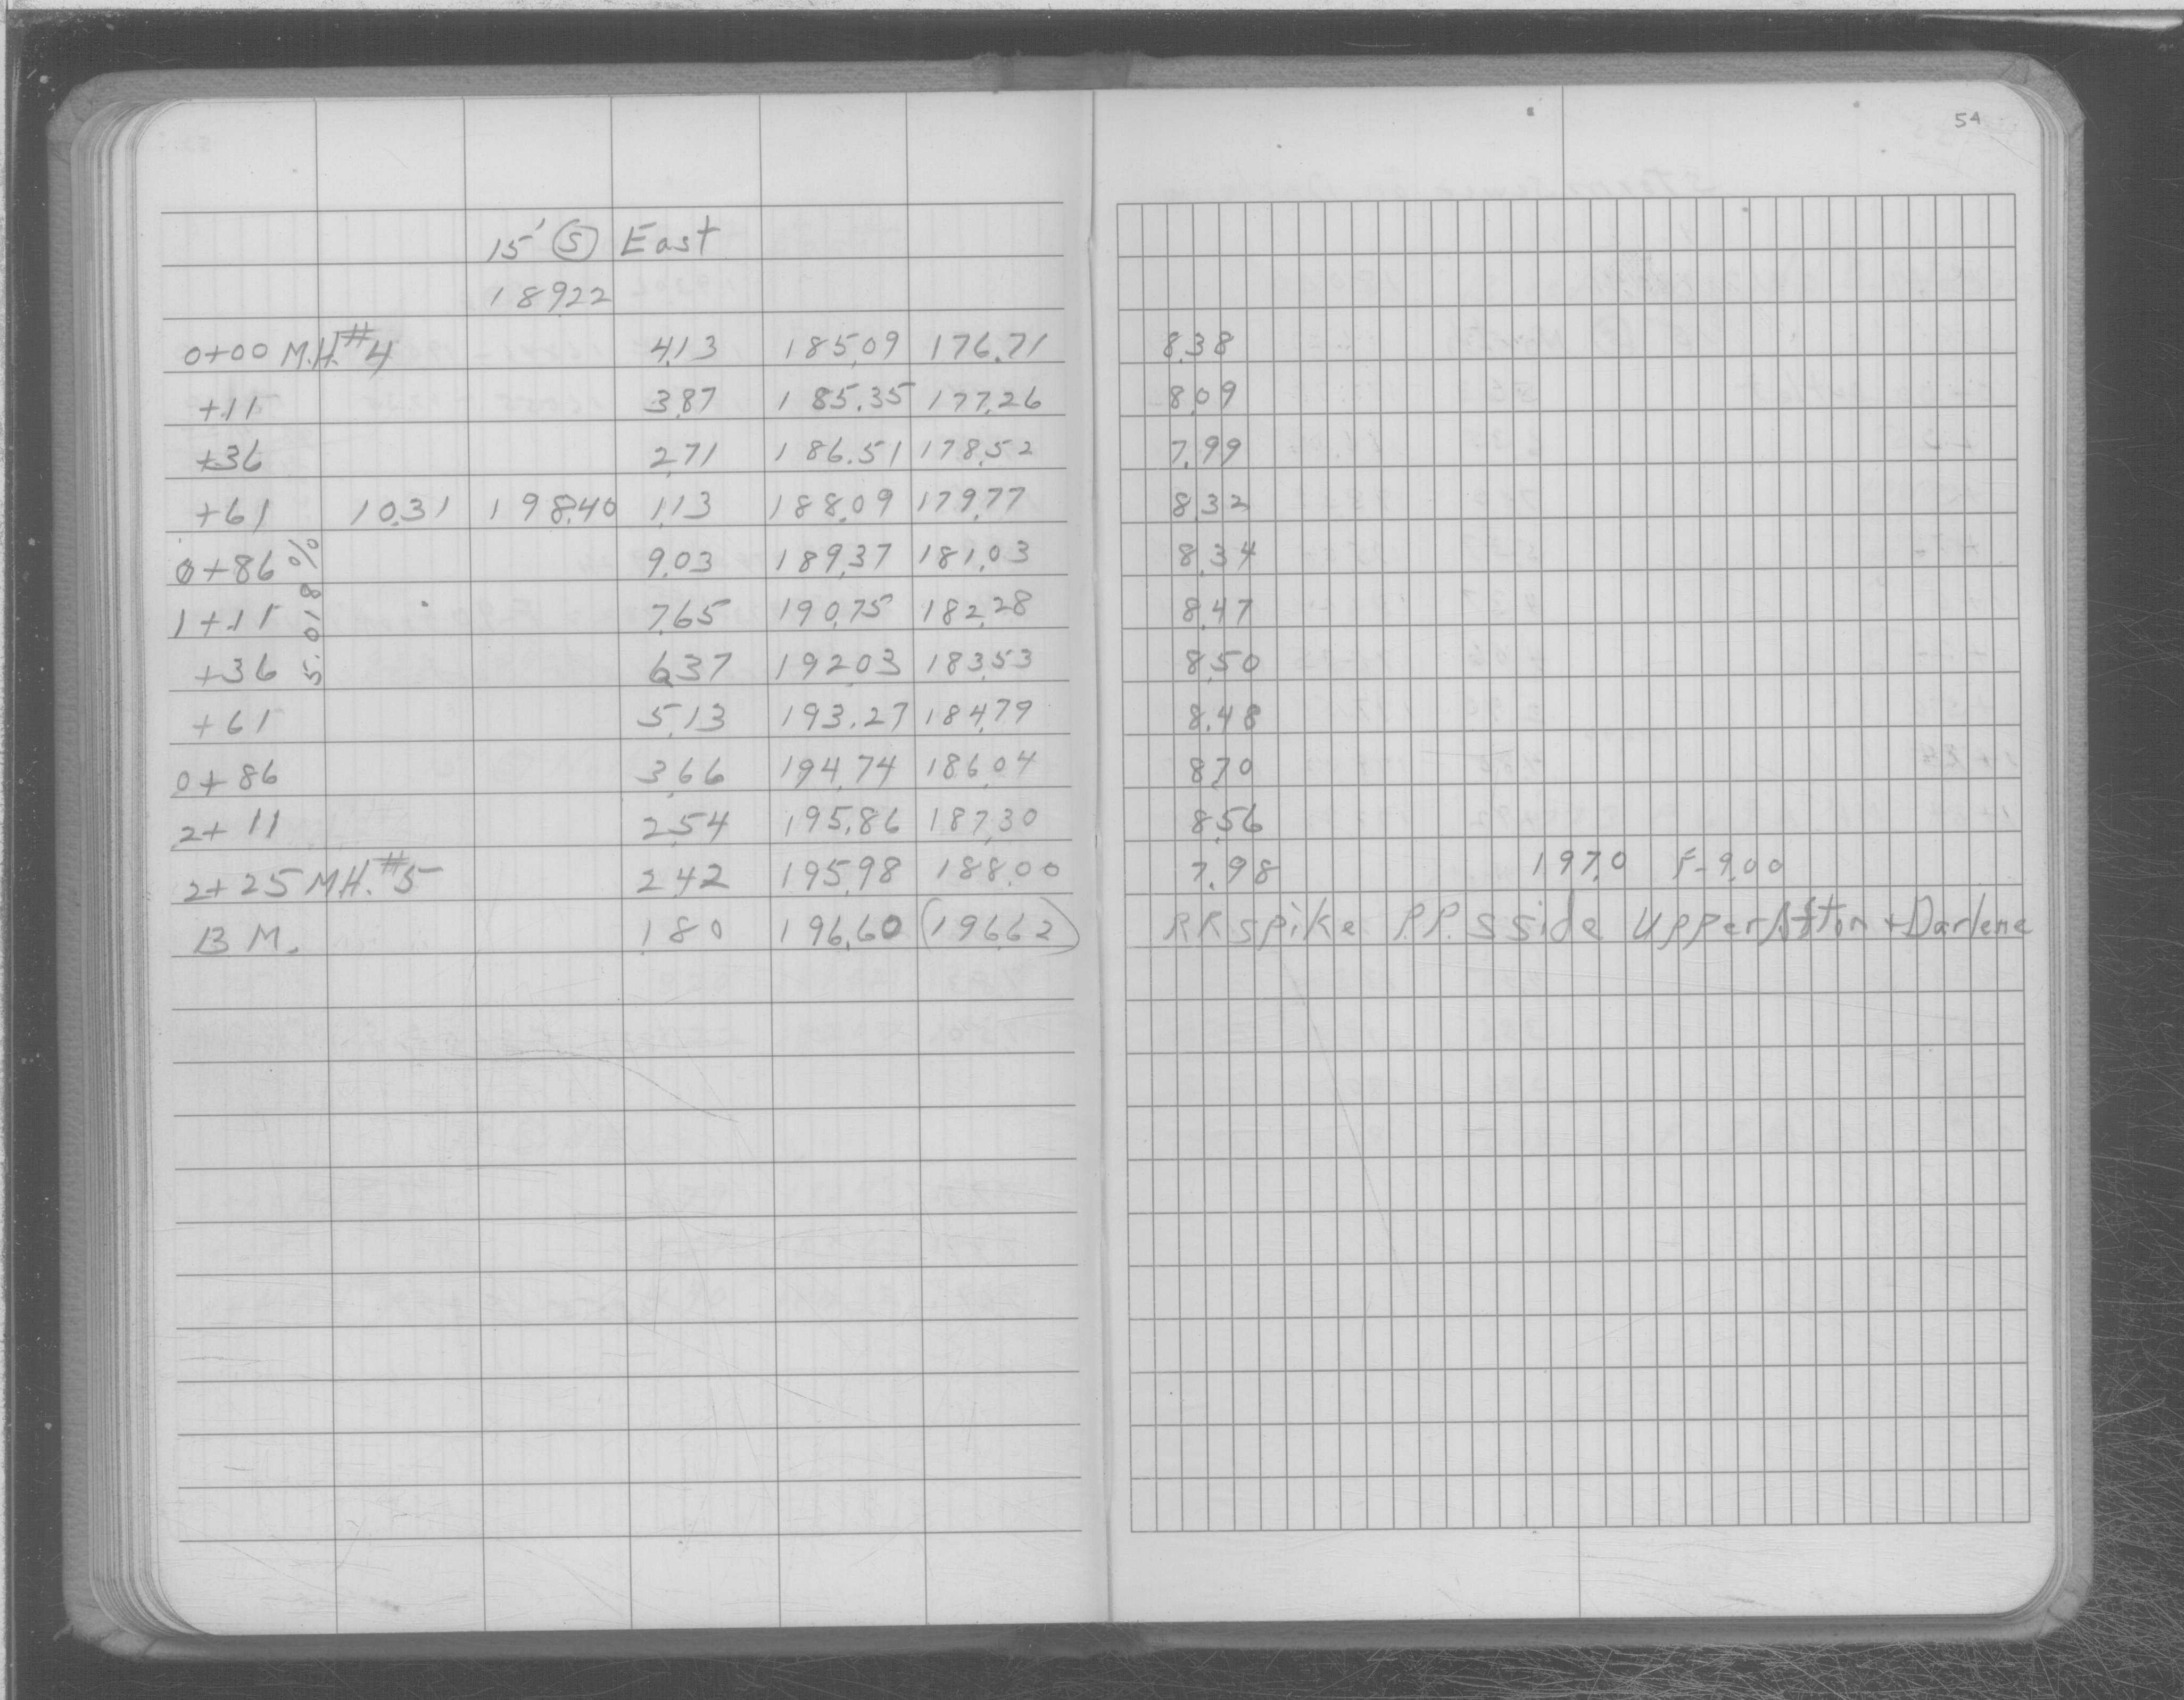 54
15' (S) East
189.22
0+00 M.H.#4 4.13 185.09 176.71 8.38
+11 3.87 185.35 177.26 8.09
+36 2.71 186.51 178.52 7.99
+61 10.31 198.40 1.13 188.09 179.77 8.32
0+86 9.03 189.37 181.03 8.34
1+11 7.65 190.75 182.28 8.47
+36 6.37 192.03 183.53 8.50
5.018%
+61 5.13 193.27 184.79 8.48
0+86 3.66 194.74 186.04 8.70
2+11 2.54 195.86 187.30 8.56
2+25 MH.#5 2.42 195.98 188.00 7.98 197.0 F-9.00
B M. 1.80 196.60 (196.62) RR spike P.P. S side Upper Afton + Darlene